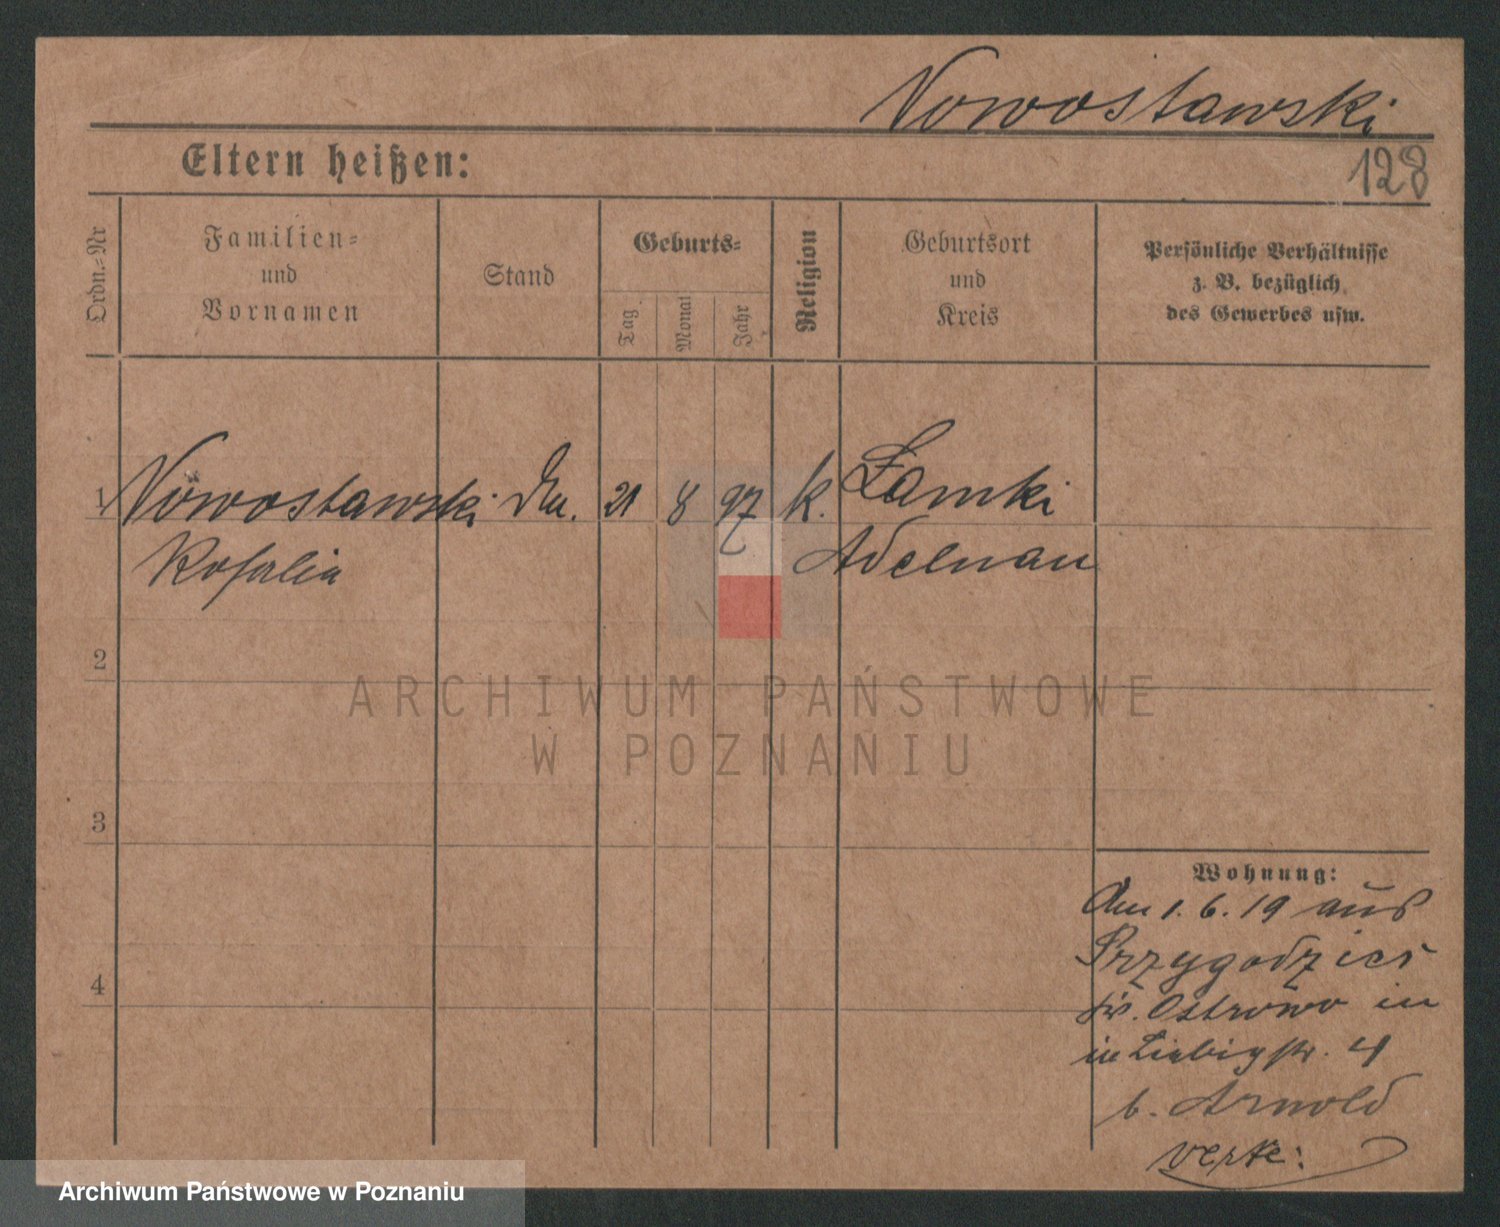 Nowostawski
Eltern heißen:
128
Ordn.-Nr
Familien-
und
Vornamen
Stand
Geburts-
Tag.
Monat
Jahr
Religion
Geburtsort
und
Kreis
Persönliche Verhältnisse
z. B. bezüglich
des Gewerbes usw.
1 Nowostawski 21 8 97 k. Łamki
Rosalia Adelnau
2
ARCHIWUM PAŃSTWOWE
W POZNANIU
3
Wohnung:
Am 1. 6. 19 aus
Przygodzice
Kr. Ostrowo in
in Liebigstr. 4
b. Arnold
4
Archiwum Państwowe w Poznaniu